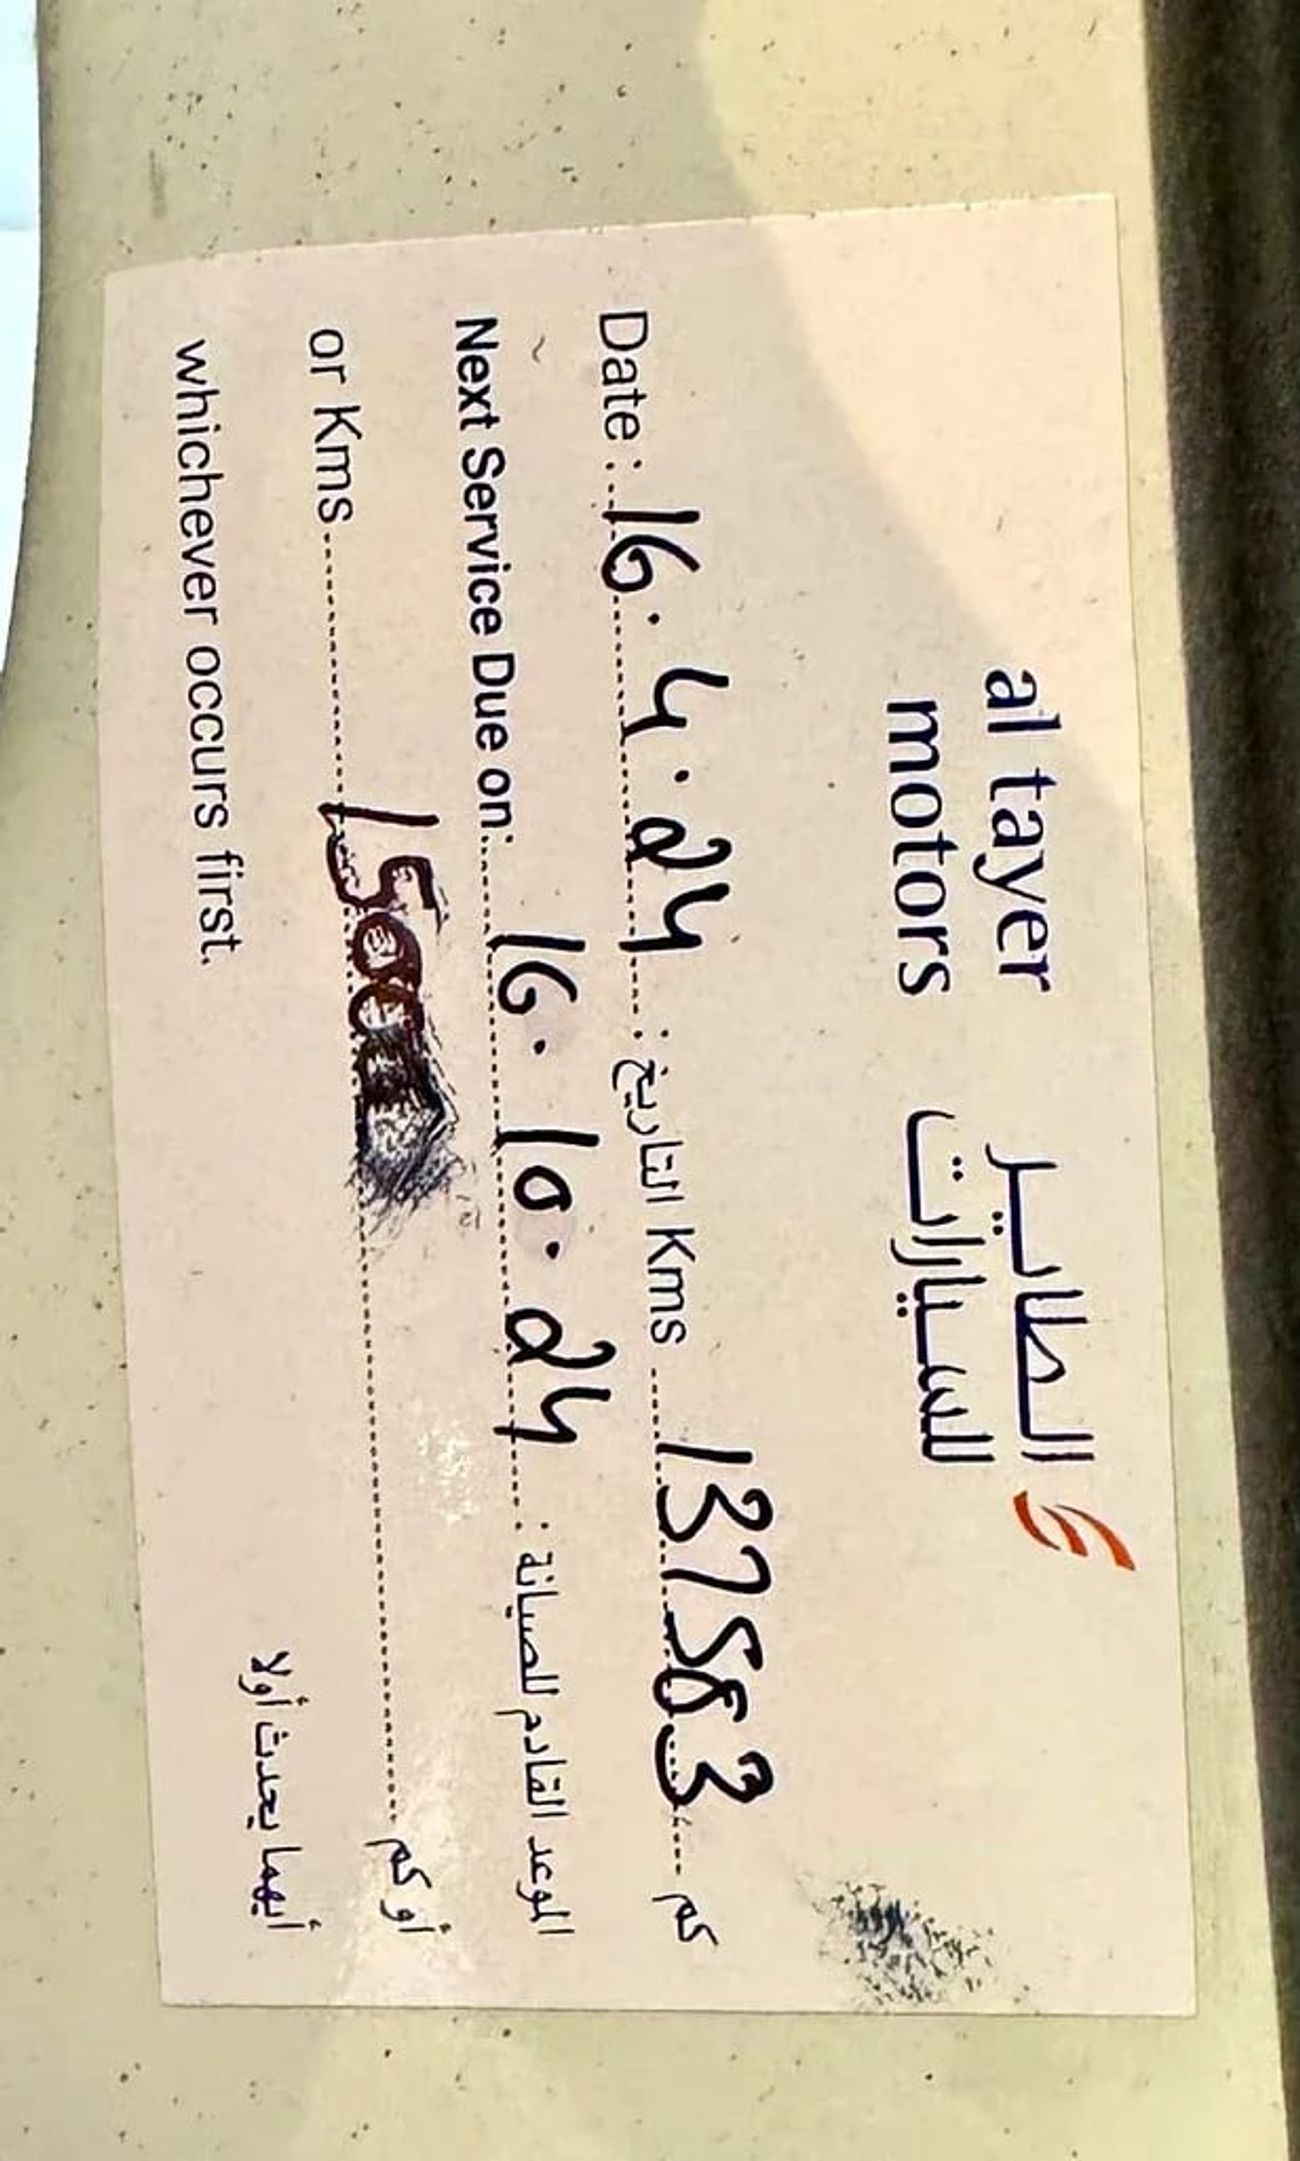 al tayer الطاير
motors للسيارات
Date : 16.4.24 : التاريخ Kms 137583 كم
Next Service Due on: 16.10.24 : الموعد القادم للصيانة
or Kms أو كم
whichever occurs first. أيهما يحدث أولا